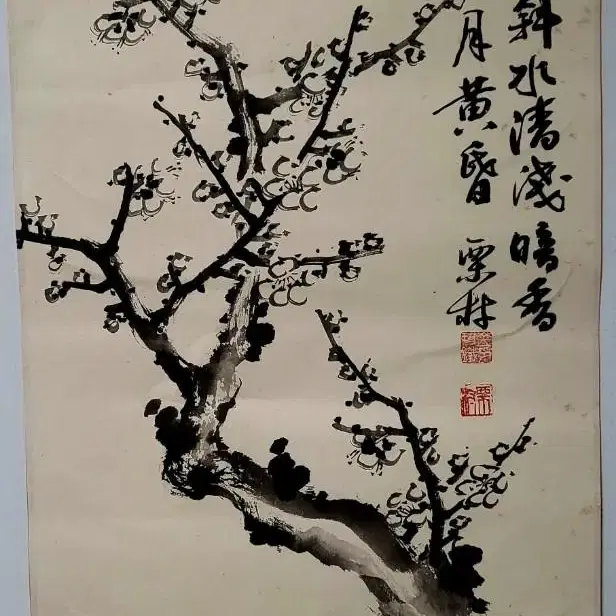 斜水清淺暗香
月黃昏 栗村